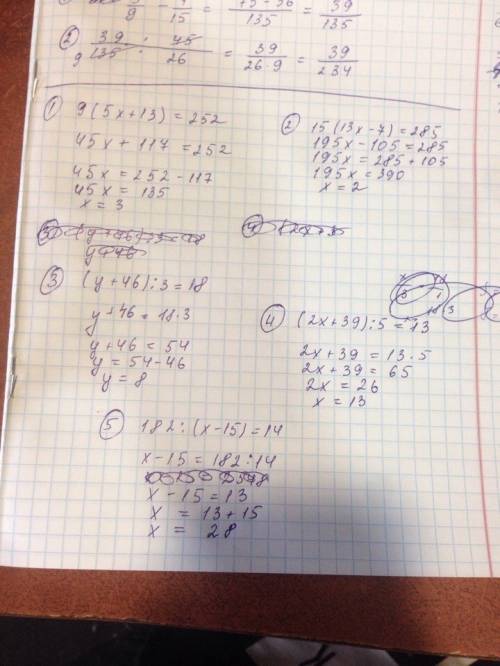 9 - 4/15 = 75-36/135 = 39/135
② 39/135 : 45/26 = 39/26·9 = 39/234
① 9(5x+13) = 252
45x + 117 = 252
45x = 252 - 117
45x = 135
x = 3
② 15(13x-7) = 285
195x - 105 = 285
195x = 285 + 105
195x = 390
x = 2
③ (y+46):3 = 18
y+46 = 18·3
y+46 = 54
y = 54-46
y = 8
④ (2x+39):5 = 13
2x+39 = 13·5
2x+39 = 65
2x = 26
x = 13
⑤ 182:(x-15) = 14
x-15 = 182:14
x - 15 = 13
x = 13 + 15
x = 28